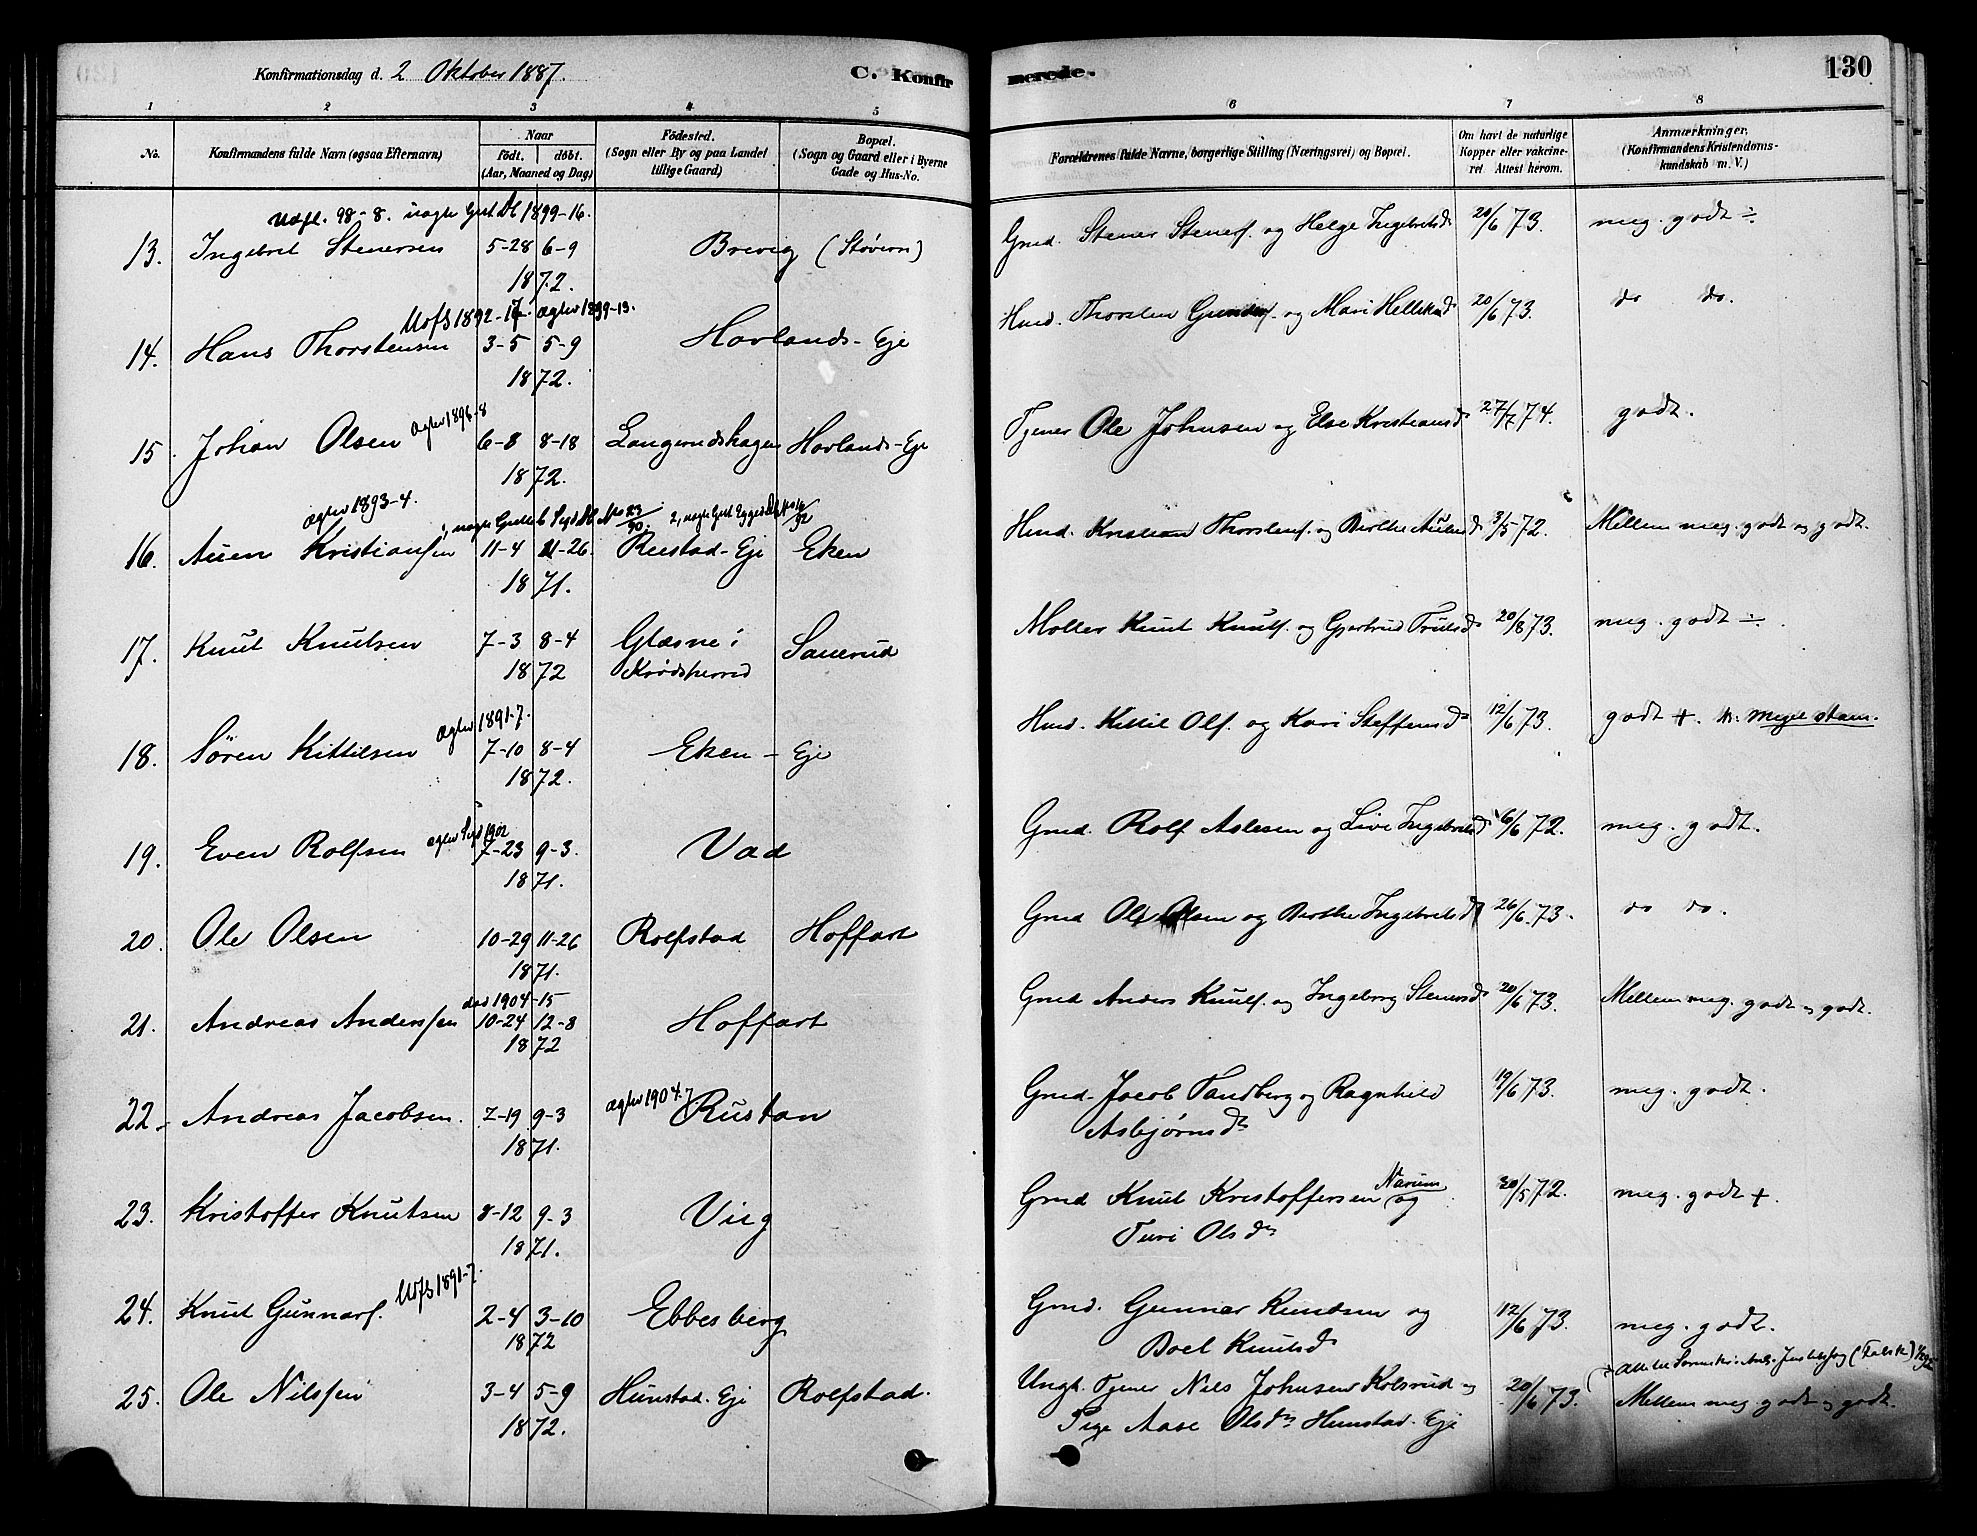 Konfirmationsdag d. 2 Oktober 1887.
C. Konfirmerede.
130
1 2 3 4 5 6 7 8
No.
Konfirmandens fulde Navn (ogsaa Efternavn)
Naar
födt. döbt.
(Aar, Maaned og Dag)
Födested.
(Sogn eller By og paa Landet
tillige Gaard)
Bopæl.
(Sogn og Gaard eller i Byerne
Gade og Hus-No.
Forældrenes fulde Navne, borgerlige Stilling (Næringsvei) og Bopæl.
Om havt de naturlige
Kopper eller vakcine-
ret. Attest herom.
Anmærkninger,
(Konfirmandens Kristendoms-
kundskab m. V.)
Udfl. 98-8. 1899-16.
13. Ingebret Stenersen 5-28 6-9 Brevig (Støvern) Gmd. Stener Stenersf. og Helge Ingebretsd. 20/6 73. meg. godt ÷.
1872.
Udfl 1892-14 ægtev 1899-13.
14. Hans Thorstensen 3-5 5-9 Hovlands-Eje Hmd. Thorsten Gundersf. og Mari Helleksd 20/6 73. do do.
1872.
ægtev 1896-8
15. Johan Olsen 6-8 8-18 Langerudshagen Hovlands-Eje Tjener Ole Johnsen og Else Kristiansd 27/7 74. godt.
1872.
ægtev 1893-4.
16. Auen Kristiansen 11-4 11-26. Rustad-Eje Eken Hmd. Kristian Thorstensf. og Berthe Auensd 3/5 72. Mellem meg. godt og godt.
1871.
17. Knut Knutsen 7-3 8-4 Glæsne i Sanerud Møller Knut Knutsf. og Gjertrud Trulsd 20/8 73. meg. godt ÷.
1872 Krødsherred
ægtev 1891-7.
18. Sören Kittilsen 7-10 8-4 Eken - Eje Hmd. Kittil Olsf. og Kari Steffensd 12/6 73. godt +. meget stam.
1872.
ægtev 1902
19. Even Rolfsen 7-23 9-3. Vad Gmd. Rolf Aslesen og Live Ingebretsd 6/6 72. meg. godt.
1871.
20. Ole Olsen 10-29 11-26 Rolfstad Hoffart Gmd Ole Olsen og Berthe Ingebretsd 26/6 73. do do.
1871.
død 1904-15
21. Andreas Anderssen 10-24 12-8 Hoffart Gmd Anders Knutsf. og Ingeborg Stenersd 20/6 73. Mellem meg. godt og godt.
1872
ægtev 1904.7.
22. Andreas Jacobsen. 7-19 9-3 Rustan Gmd. Jacob Tandberg og Ragnhild 19/6 73. meg. godt.
1871. Asbjørnsd
23. Kristoffer Knutsen 8-12 9-3 Viig Gmd Knut Kristoffersen Narum og 30/5 72. meg. godt +.
1871. Turi Olsd
Udfl 1891-7.
24. Knut Gunnarf. 2-4 3-10 Ebbesberg Gmd. Gunnar Knudsen og 12/6 73. meg. godt.
1872 Boel Knutsd
25. Ole Nilssen 3-4 5-9 Hunstad-Eje Rolfstad. Ungk. Tjener Nils Johnsen Kolsrud og 20/6 73. Mellem meg godt og godt.
1872. Pige Aase Olsd Hunstad-Eje